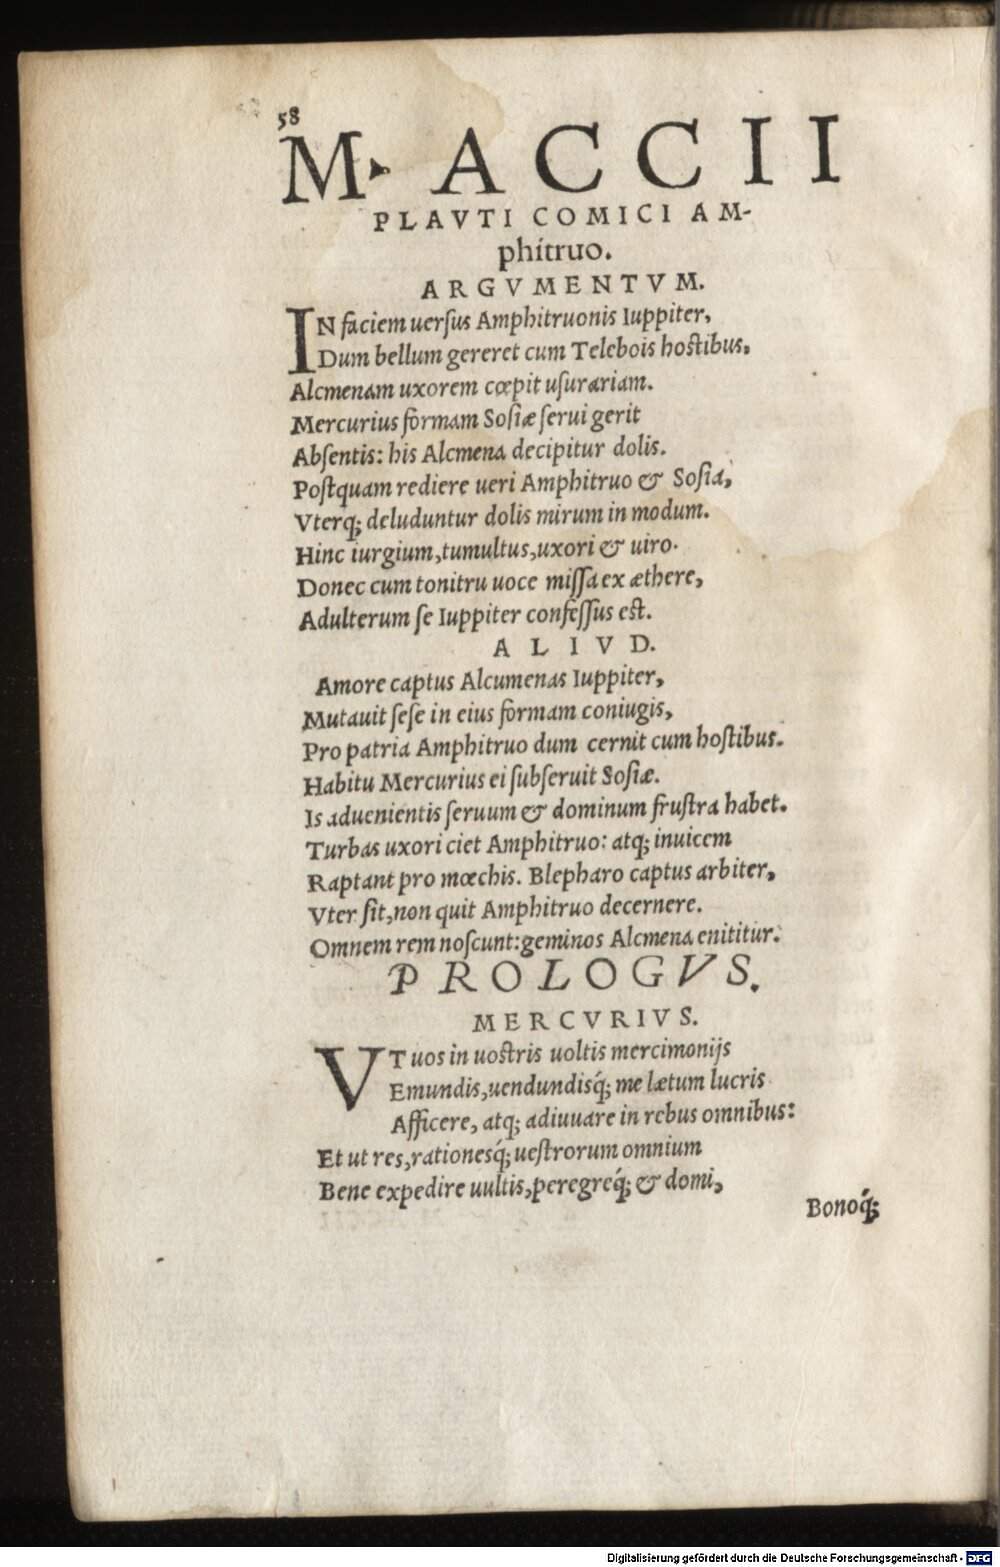 58
M. ACCII
PLAVTI COMICI AM-
phitruo.
ARGVMENTVM.
IN faciem uerſus Amphitruonis Iuppiter,
Dum bellum gereret cum Telebois hoſtibus,
Alcmenam uxorem cœpit uſurariam.
Mercurius formam Soſiæ ſerui gerit
Abſentis: his Alcmena decipitur dolis.
Poſtquam rediere ueri Amphitruo & Soſia,
Vterq; deluduntur dolis mirum in modum.
Hinc iurgium, tumultus, uxori & uiro.
Donec cum tonitru uoce miſſa ex æthere,
Adulterum ſe Iuppiter confeſſus eſt.
ALIVD.
Amore captus Alcumenas Iuppiter,
Mutauit ſeſe in eius formam coniugis,
Pro patria Amphitruo dum cernit cum hoſtibus.
Habitu Mercurius ei ſubſeruit Soſiæ.
Is aduenientis ſeruum & dominum fruſtra habet.
Turbas uxori ciet Amphitruo: atq; inuicem
Raptant pro mœchis. Blepharo captus arbiter,
Vter ſit, non quit Amphitruo decernere.
Omnem rem noſcunt: geminos Alcmena enititur.
PROLOGVS.
MERCVRIVS.
VT uos in uoſtris uoltis mercimonijs
Emundis, uendundisq́; me lætum lucris
Afficere, atq; adiuuare in rebus omnibus:
Et ut res, rationesq́; ueſtrorum omnium
Bene expedire uultis, peregreq́; & domi,
Bonoq́;
Digitalisierung gefördert durch die Deutsche Forschungsgemeinschaft - DFG